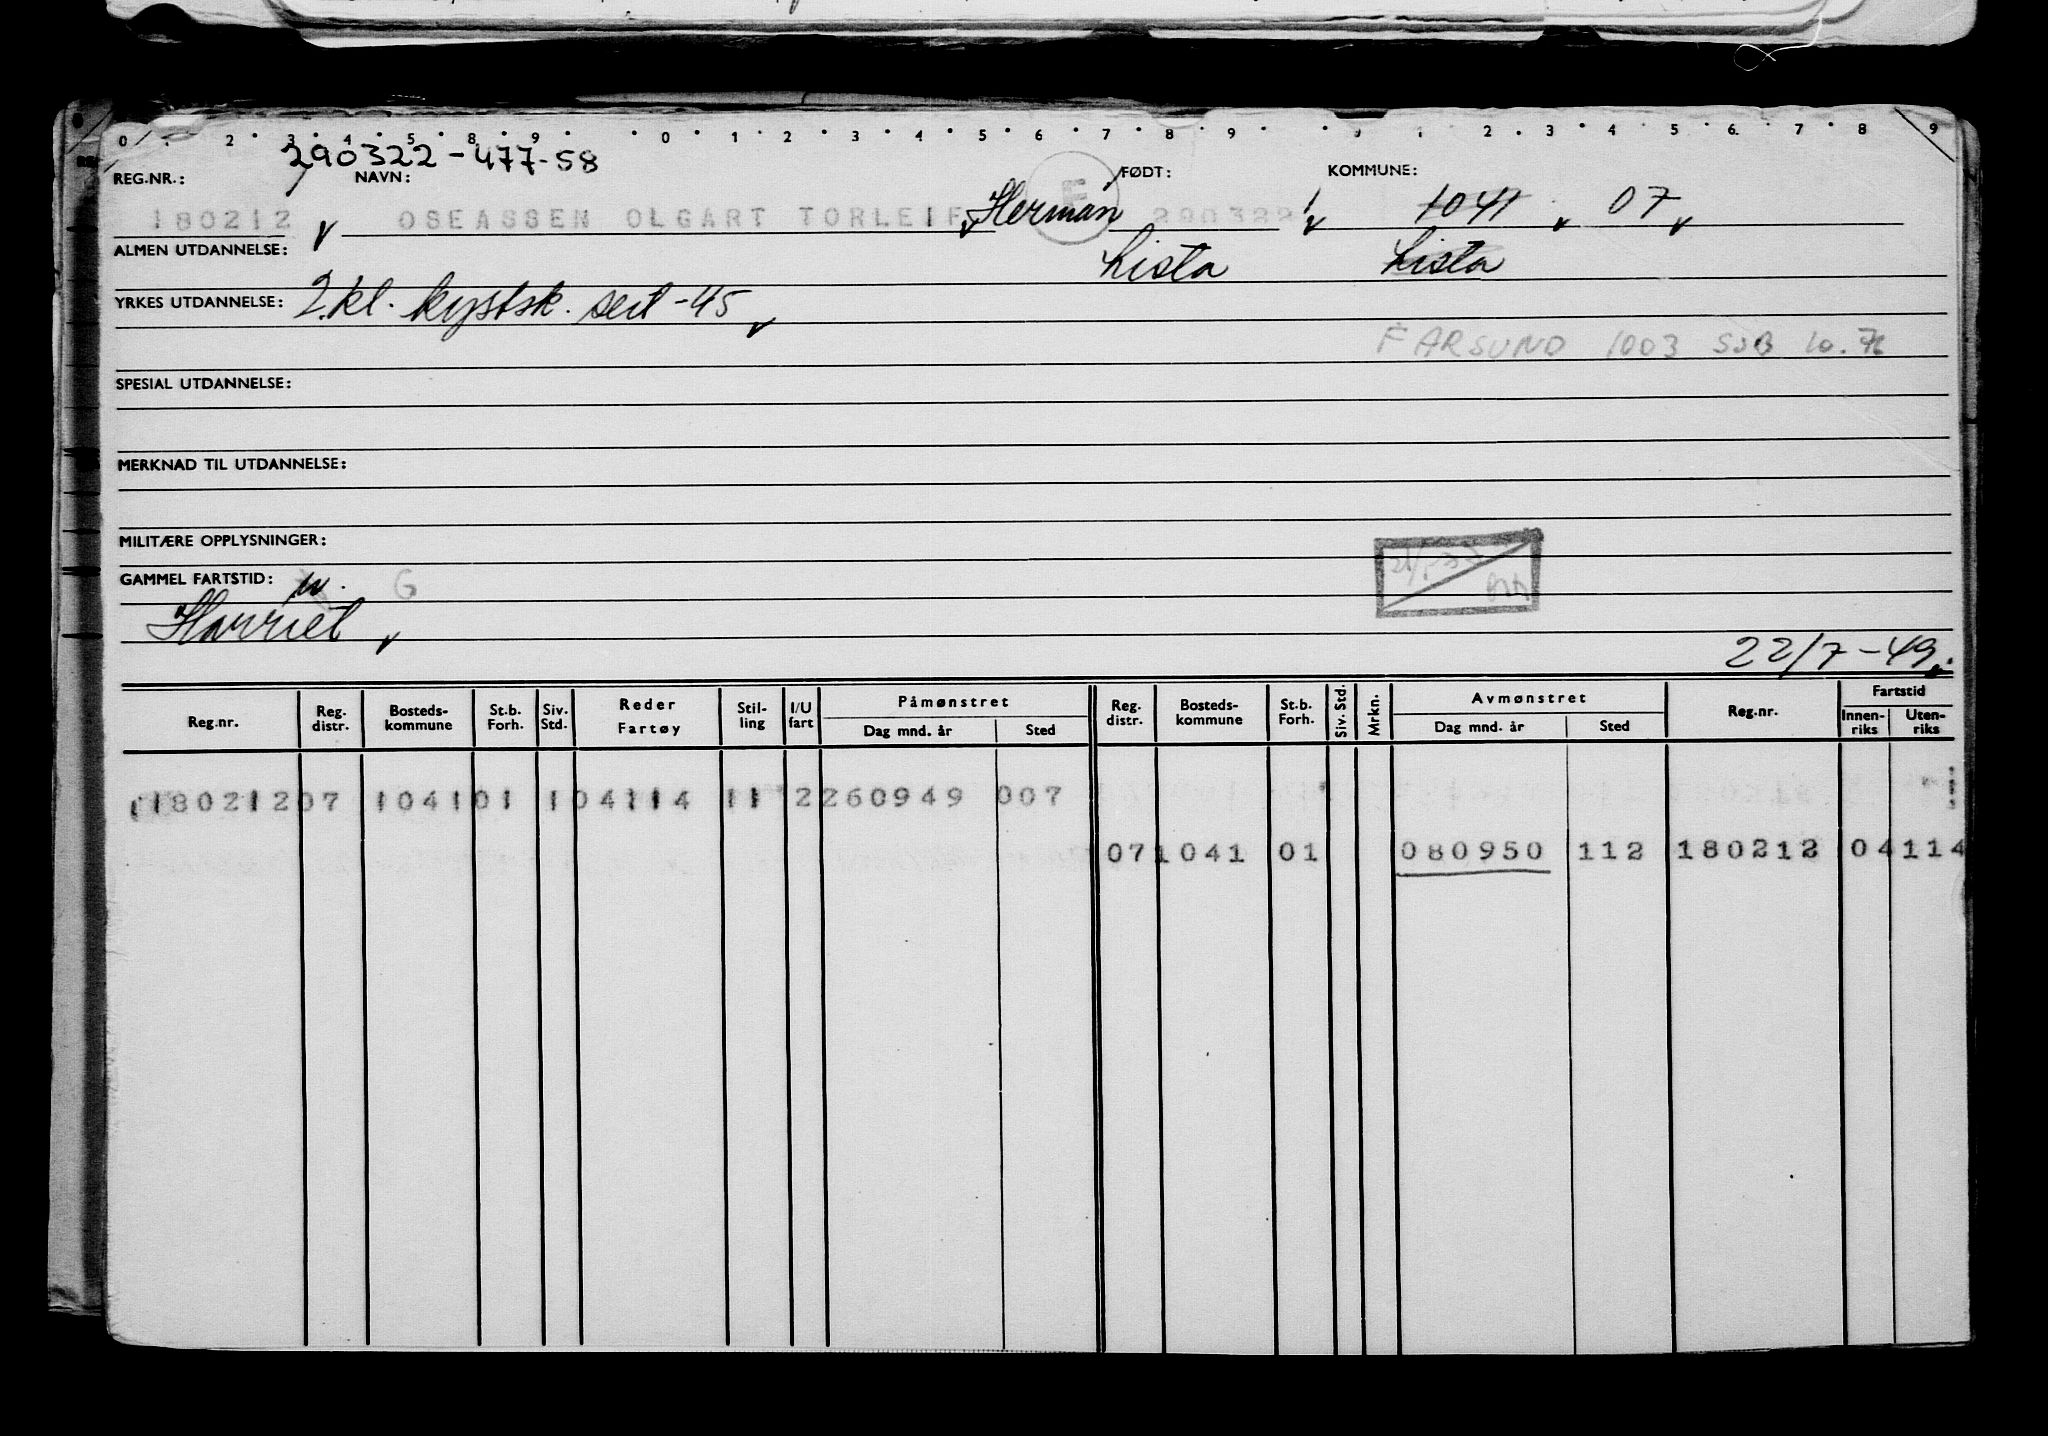 0 2 3 4 5 8 9 0 1 2 3 4 5 6 7 8 9 1 2 3 4 5 6 7 8 9
290322-477-58
REG.NR.: NAVN: FØDT: KOMMUNE:
180212 OSEASSEN OLGART TORLEIF Herman 290322 1041 07
ALMEN UTDANNELSE: Lista Lista
YRKES UTDANNELSE: 2 kl. kystsk. sert -45
FARSUND 1003 SJØ 10.76
SPESIAL UTDANNELSE:
MERKNAD TIL UTDANNELSE:
MILITÆRE OPPLYSNINGER:
GAMMEL FARTSTID: G
Harriet
22/7-49.
Reg.nr. Reg. distr. Bosteds-kommune St.b. Forh. Siv. Std. Reder Fartøy Stil-ling I/U fart Påmønstret Dag mnd. år Sted Reg. distr. Bosteds-kommune St.b. Forh. Siv. Std. Mrkn. Avmønstret Dag mnd. år Sted Reg.nr. Fartstid Innen-riks Uten-riks
180212 07 1041 01 1 04114 11 2 260949 007
07 1041 01 080950 112 180212 04114